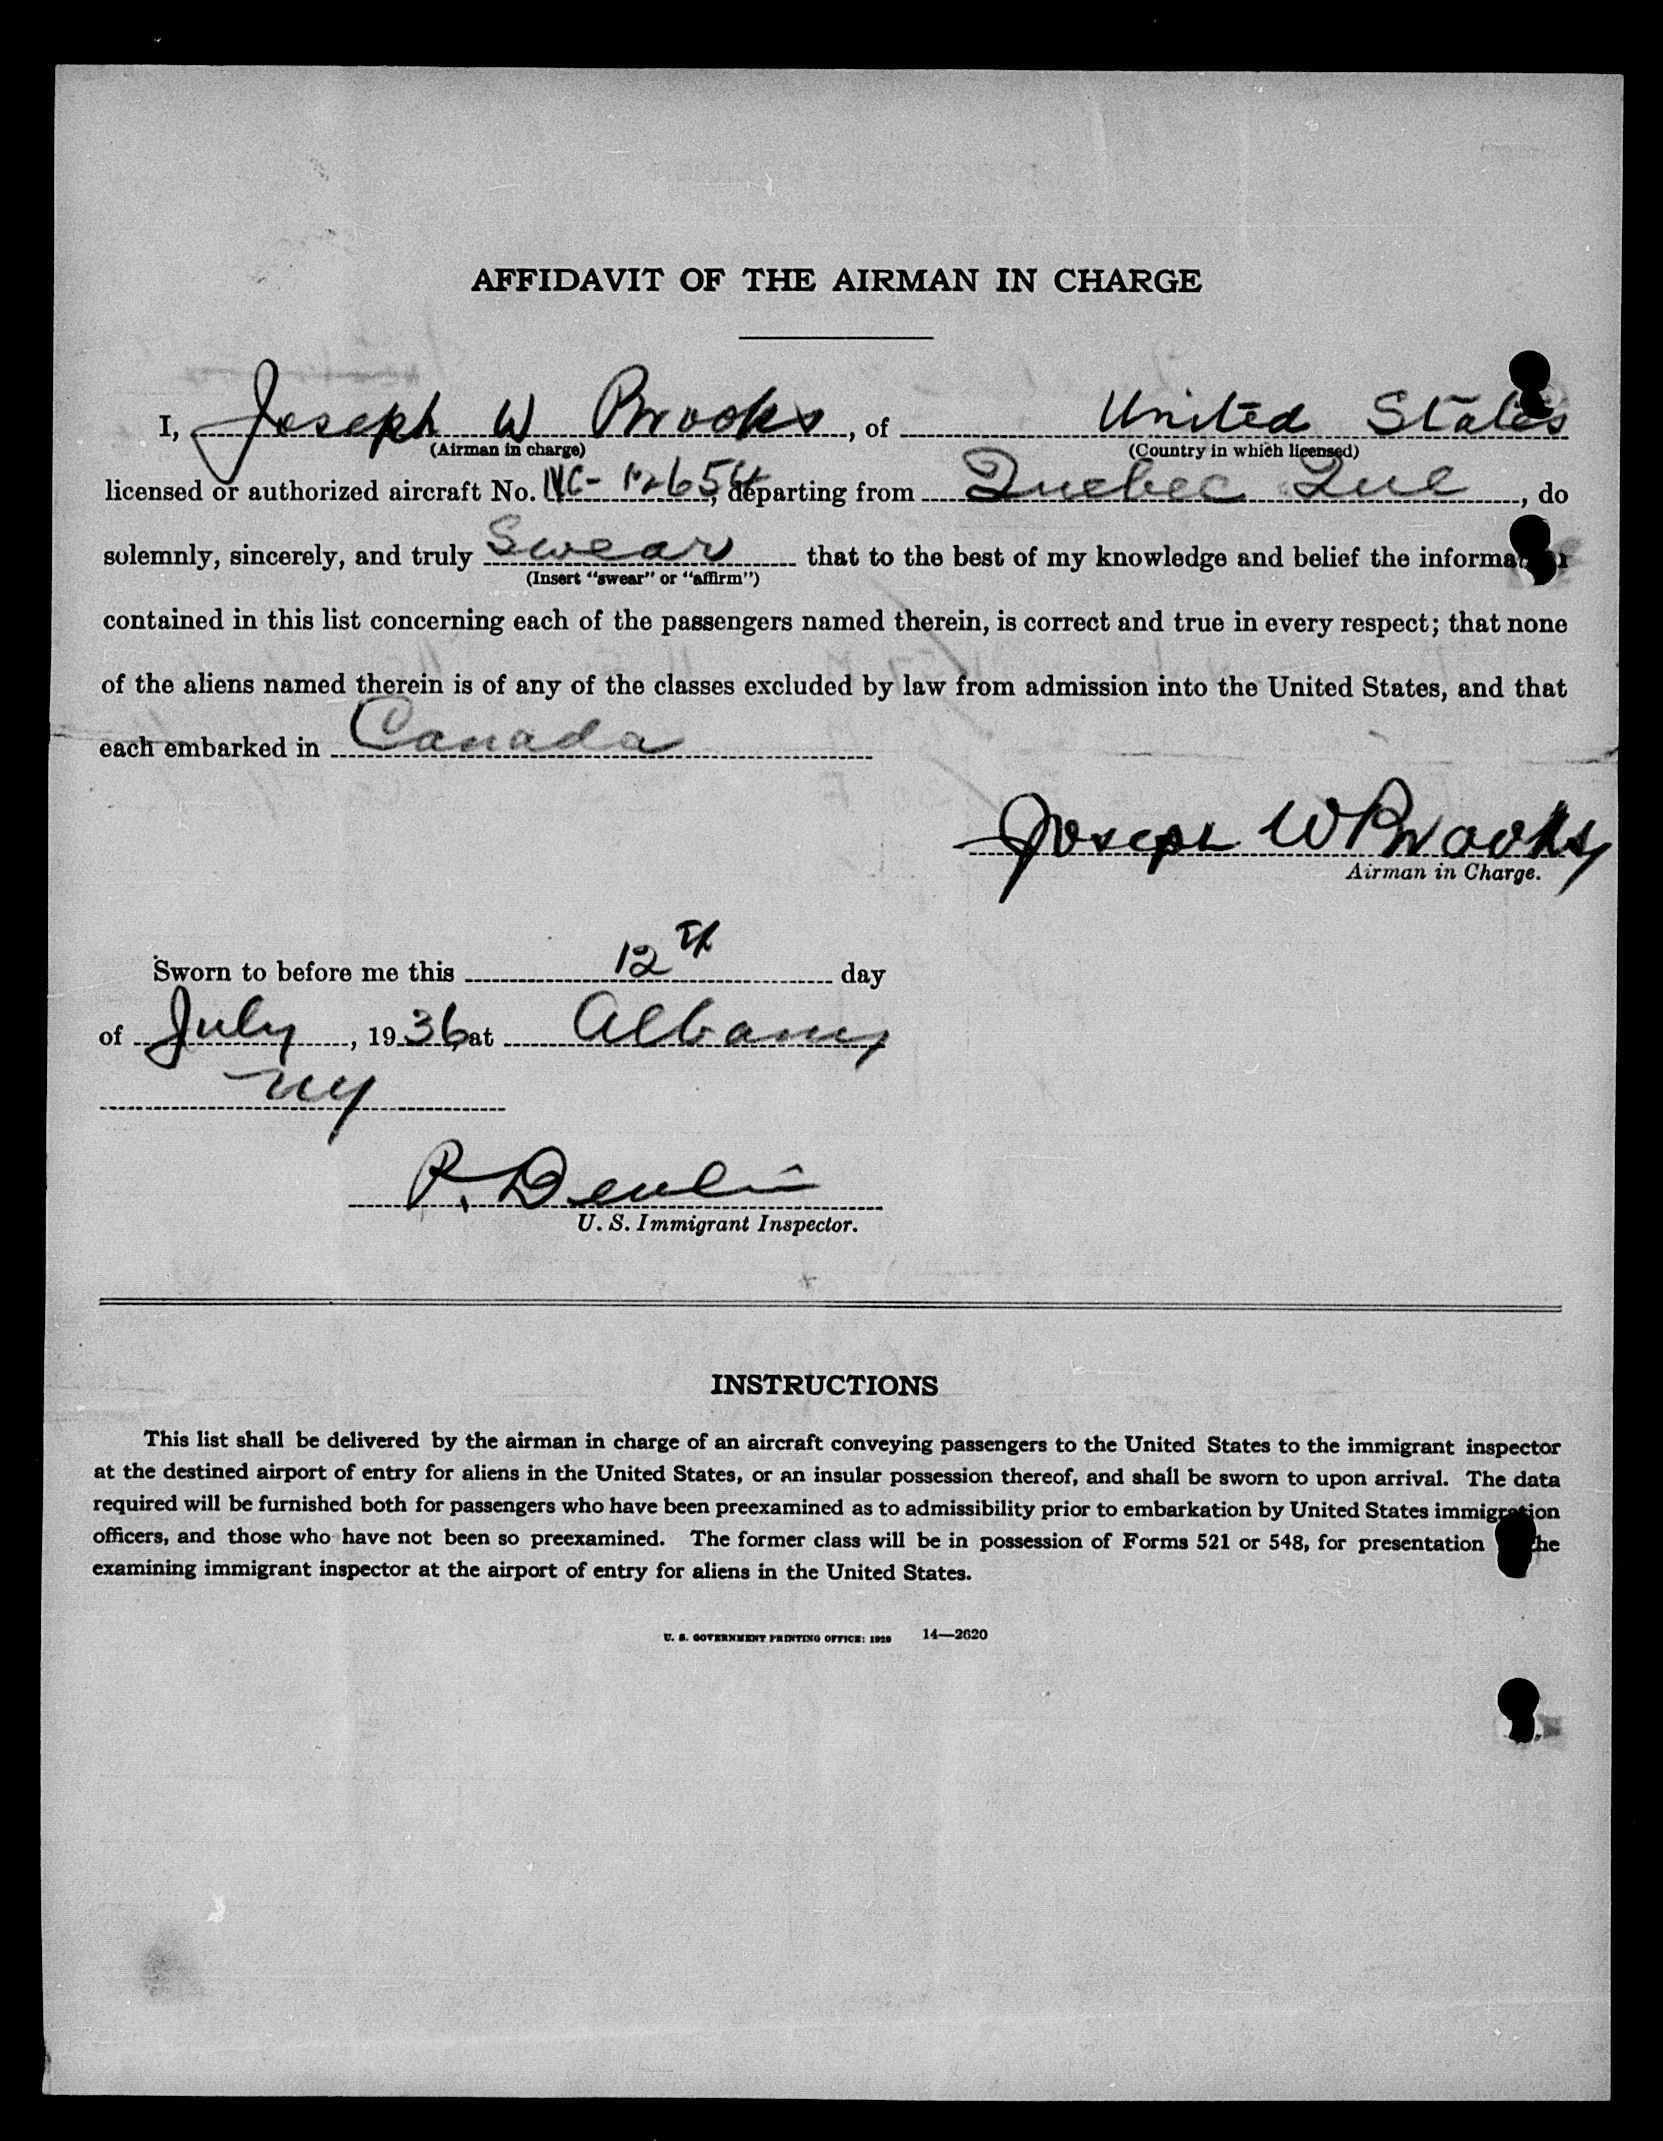 AFFIDAVIT OF THE AIRMAN IN CHARGE
I, Joseph W Brooks, of United States
(Airman in charge) (Country in which licensed)
licensed or authorized aircraft No. NC-12654, departing from Quebec Que, do
solemnly, sincerely, and truly Swear that to the best of my knowledge and belief the information
(Insert "swear" or "affirm")
contained in this list concerning each of the passengers named therein, is correct and true in every respect; that none
of the aliens named therein is of any of the classes excluded by law from admission into the United States, and that
each embarked in Canada
Joseph W Brooks
Airman in Charge.
Sworn to before me this 12th day
of July, 1936, at Albany
NY
P. Devlin
U. S. Immigrant Inspector.
INSTRUCTIONS
This list shall be delivered by the airman in charge of an aircraft conveying passengers to the United States to the immigrant inspector
at the destined airport of entry for aliens in the United States, or an insular possession thereof, and shall be sworn to upon arrival. The data
required will be furnished both for passengers who have been preexamined as to admissibility prior to embarkation by United States immigration
officers, and those who have not been so preexamined. The former class will be in possession of Forms 521 or 548, for presentation the
examining immigrant inspector at the airport of entry for aliens in the United States.
U. S. GOVERNMENT PRINTING OFFICE: 1929 14—2620